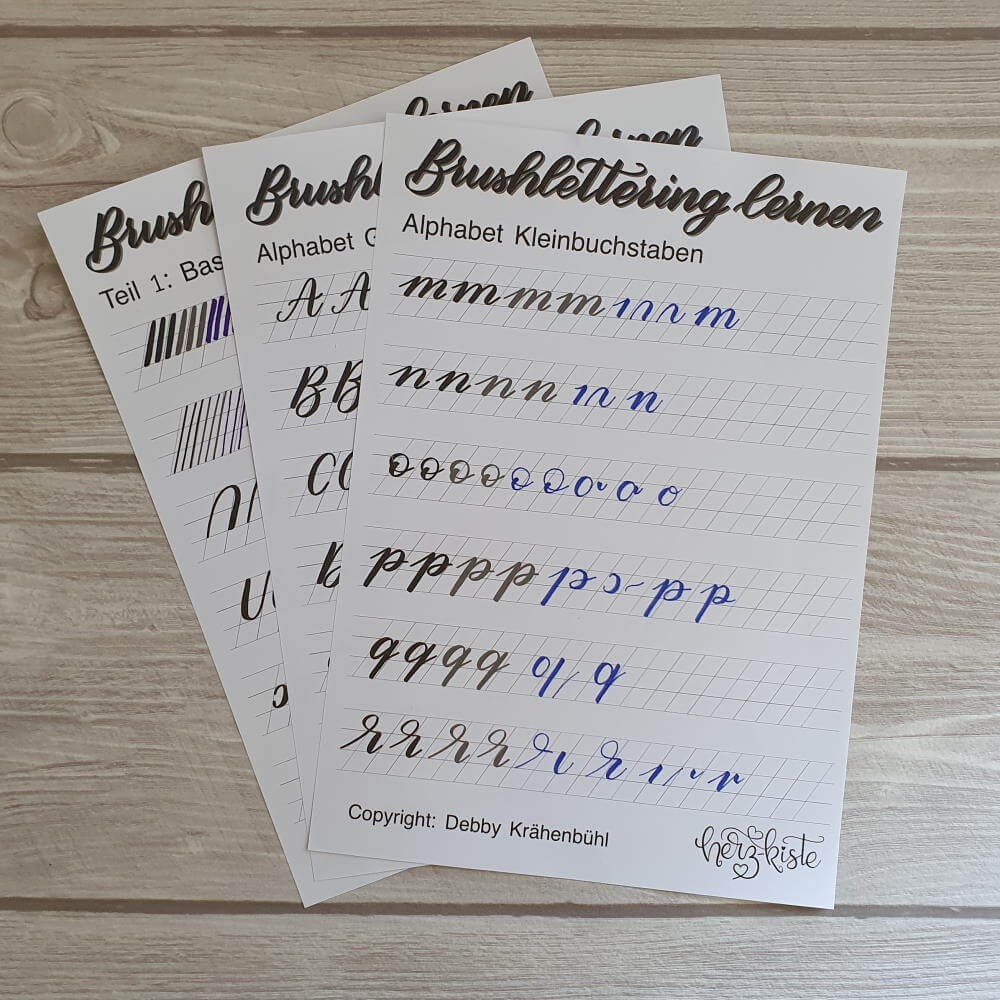 Brush lernen
Teil 1: Bas
Brushl lernen
Alphabet G
A A
B B
C C
Brushlettering lernen
Alphabet Kleinbuchstaben
m m m m m
n n n n n
o o o o o o o o
p p p p p p p
q q q q q
r r r r r r
Copyright: Debby Krähenbühl
herz-kiste